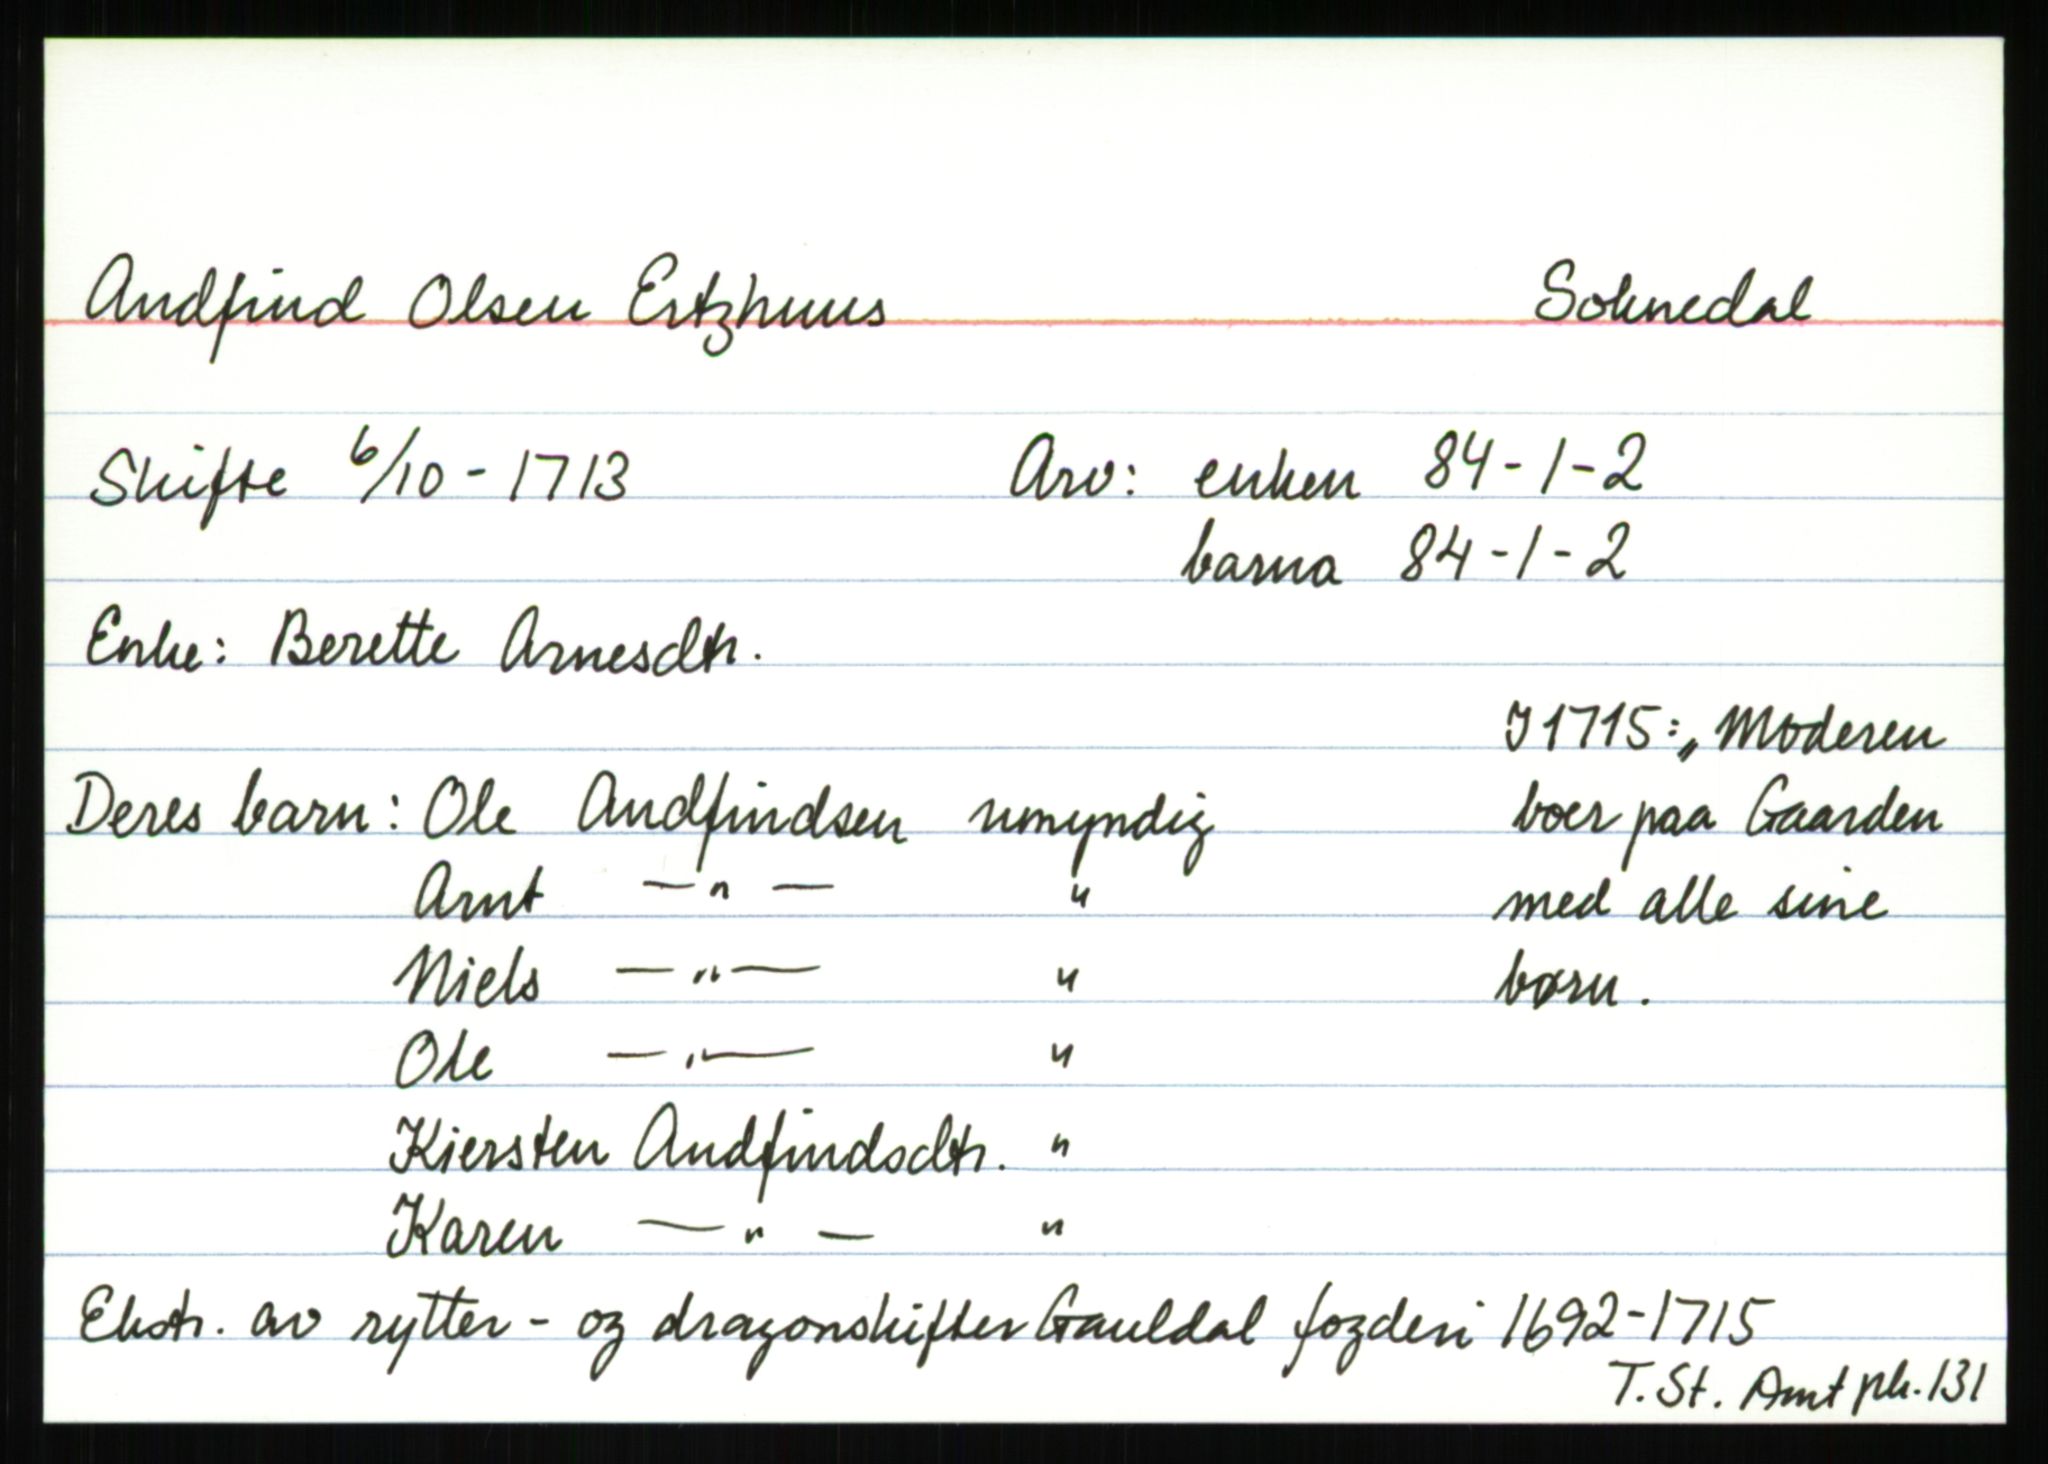 Andfind Olsen Ertzhuus Soknedal
Skifte 6/10 - 1713 Arv: enken 84-1-2
barna 84-1-2
Enke: Berette Arnesdtr.
I 1715: „Moderen
Deres barn: Ole Andfindsen umyndig boer paa Gaarden
Arnt —„— " med alle sine
Niels —„— " børn.
Ole —„— "
Kiersten Andfindsdtr. "
Karen —„— "
Ekstr. av rytter- og dragonskifter Gauldal fogderi 1692-1715
T. St. Amt pk. 131